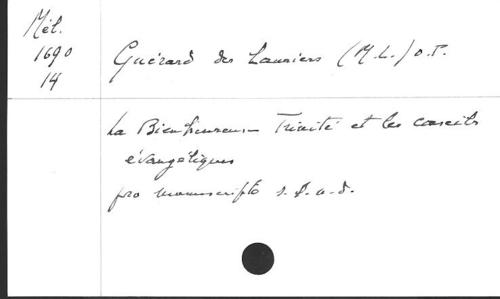 Mél.
1690
14
Guérard des Lauriers (M.L.) O.P.
La Bienheureuse Trinité et les conseils
évangéliques
pro manuscripto s.l.n.d.